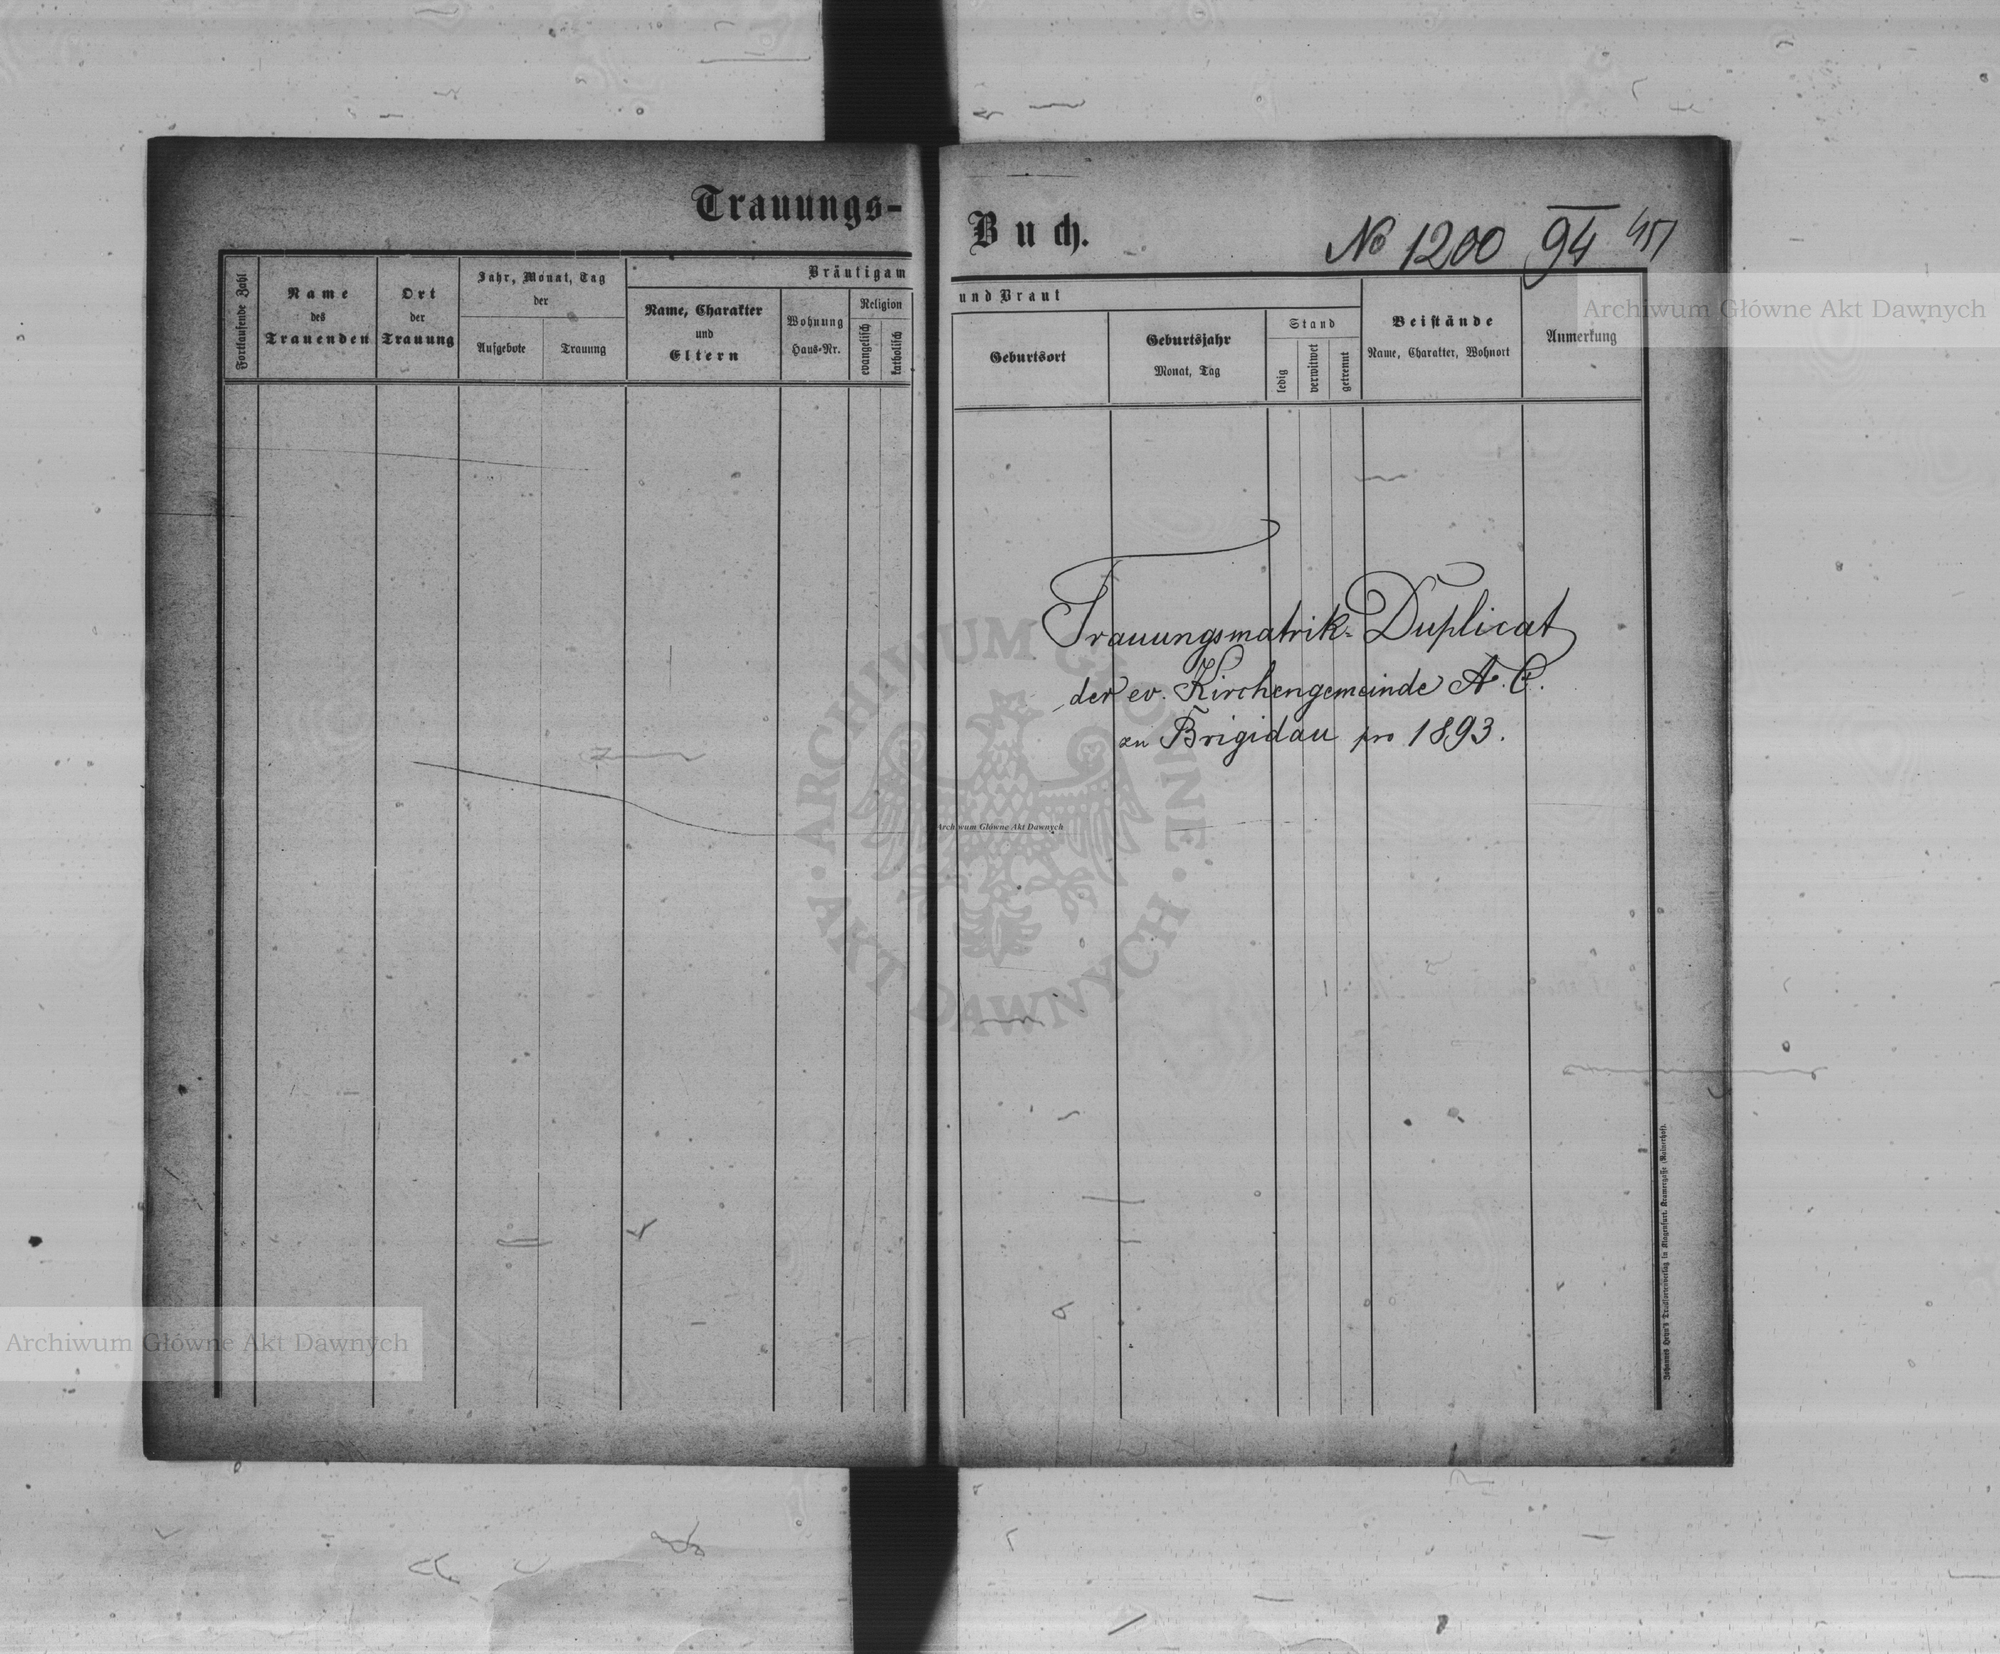 Trauungs-
Buch.
No 1200 94
Fortlaufende Zahl
Name
des
Trauenden
Ort
der
Trauung
Jahr, Monat, Tag
der
Aufgebote
Trauung
Bräutigam
Name, Charakter
und
Eltern
Wohnung
Haus-Nr.
Religion
evangelisch
katholisch
und Braut
Geburtsort
Geburtsjahr
Monat, Tag
Stand
ledig
verwitwet
getrennt
Beistände
Name, Charakter, Wohnort
Anmerkung
Trauungsmatrik-Duplicat
der ev. Kirchengemeinde A. C.
zu Brigidau pro 1893.
Johannes Heyn's Drucksortenverlag in Klagenfurt, Kramergasse (Rainerhof).
Archiwum Główne Akt Dawnych
Archiwum Główne Akt Dawnych
Archiwum Główne Akt Dawnych
ARCHIWUM GŁÓWNE
AKT DAWNYCH